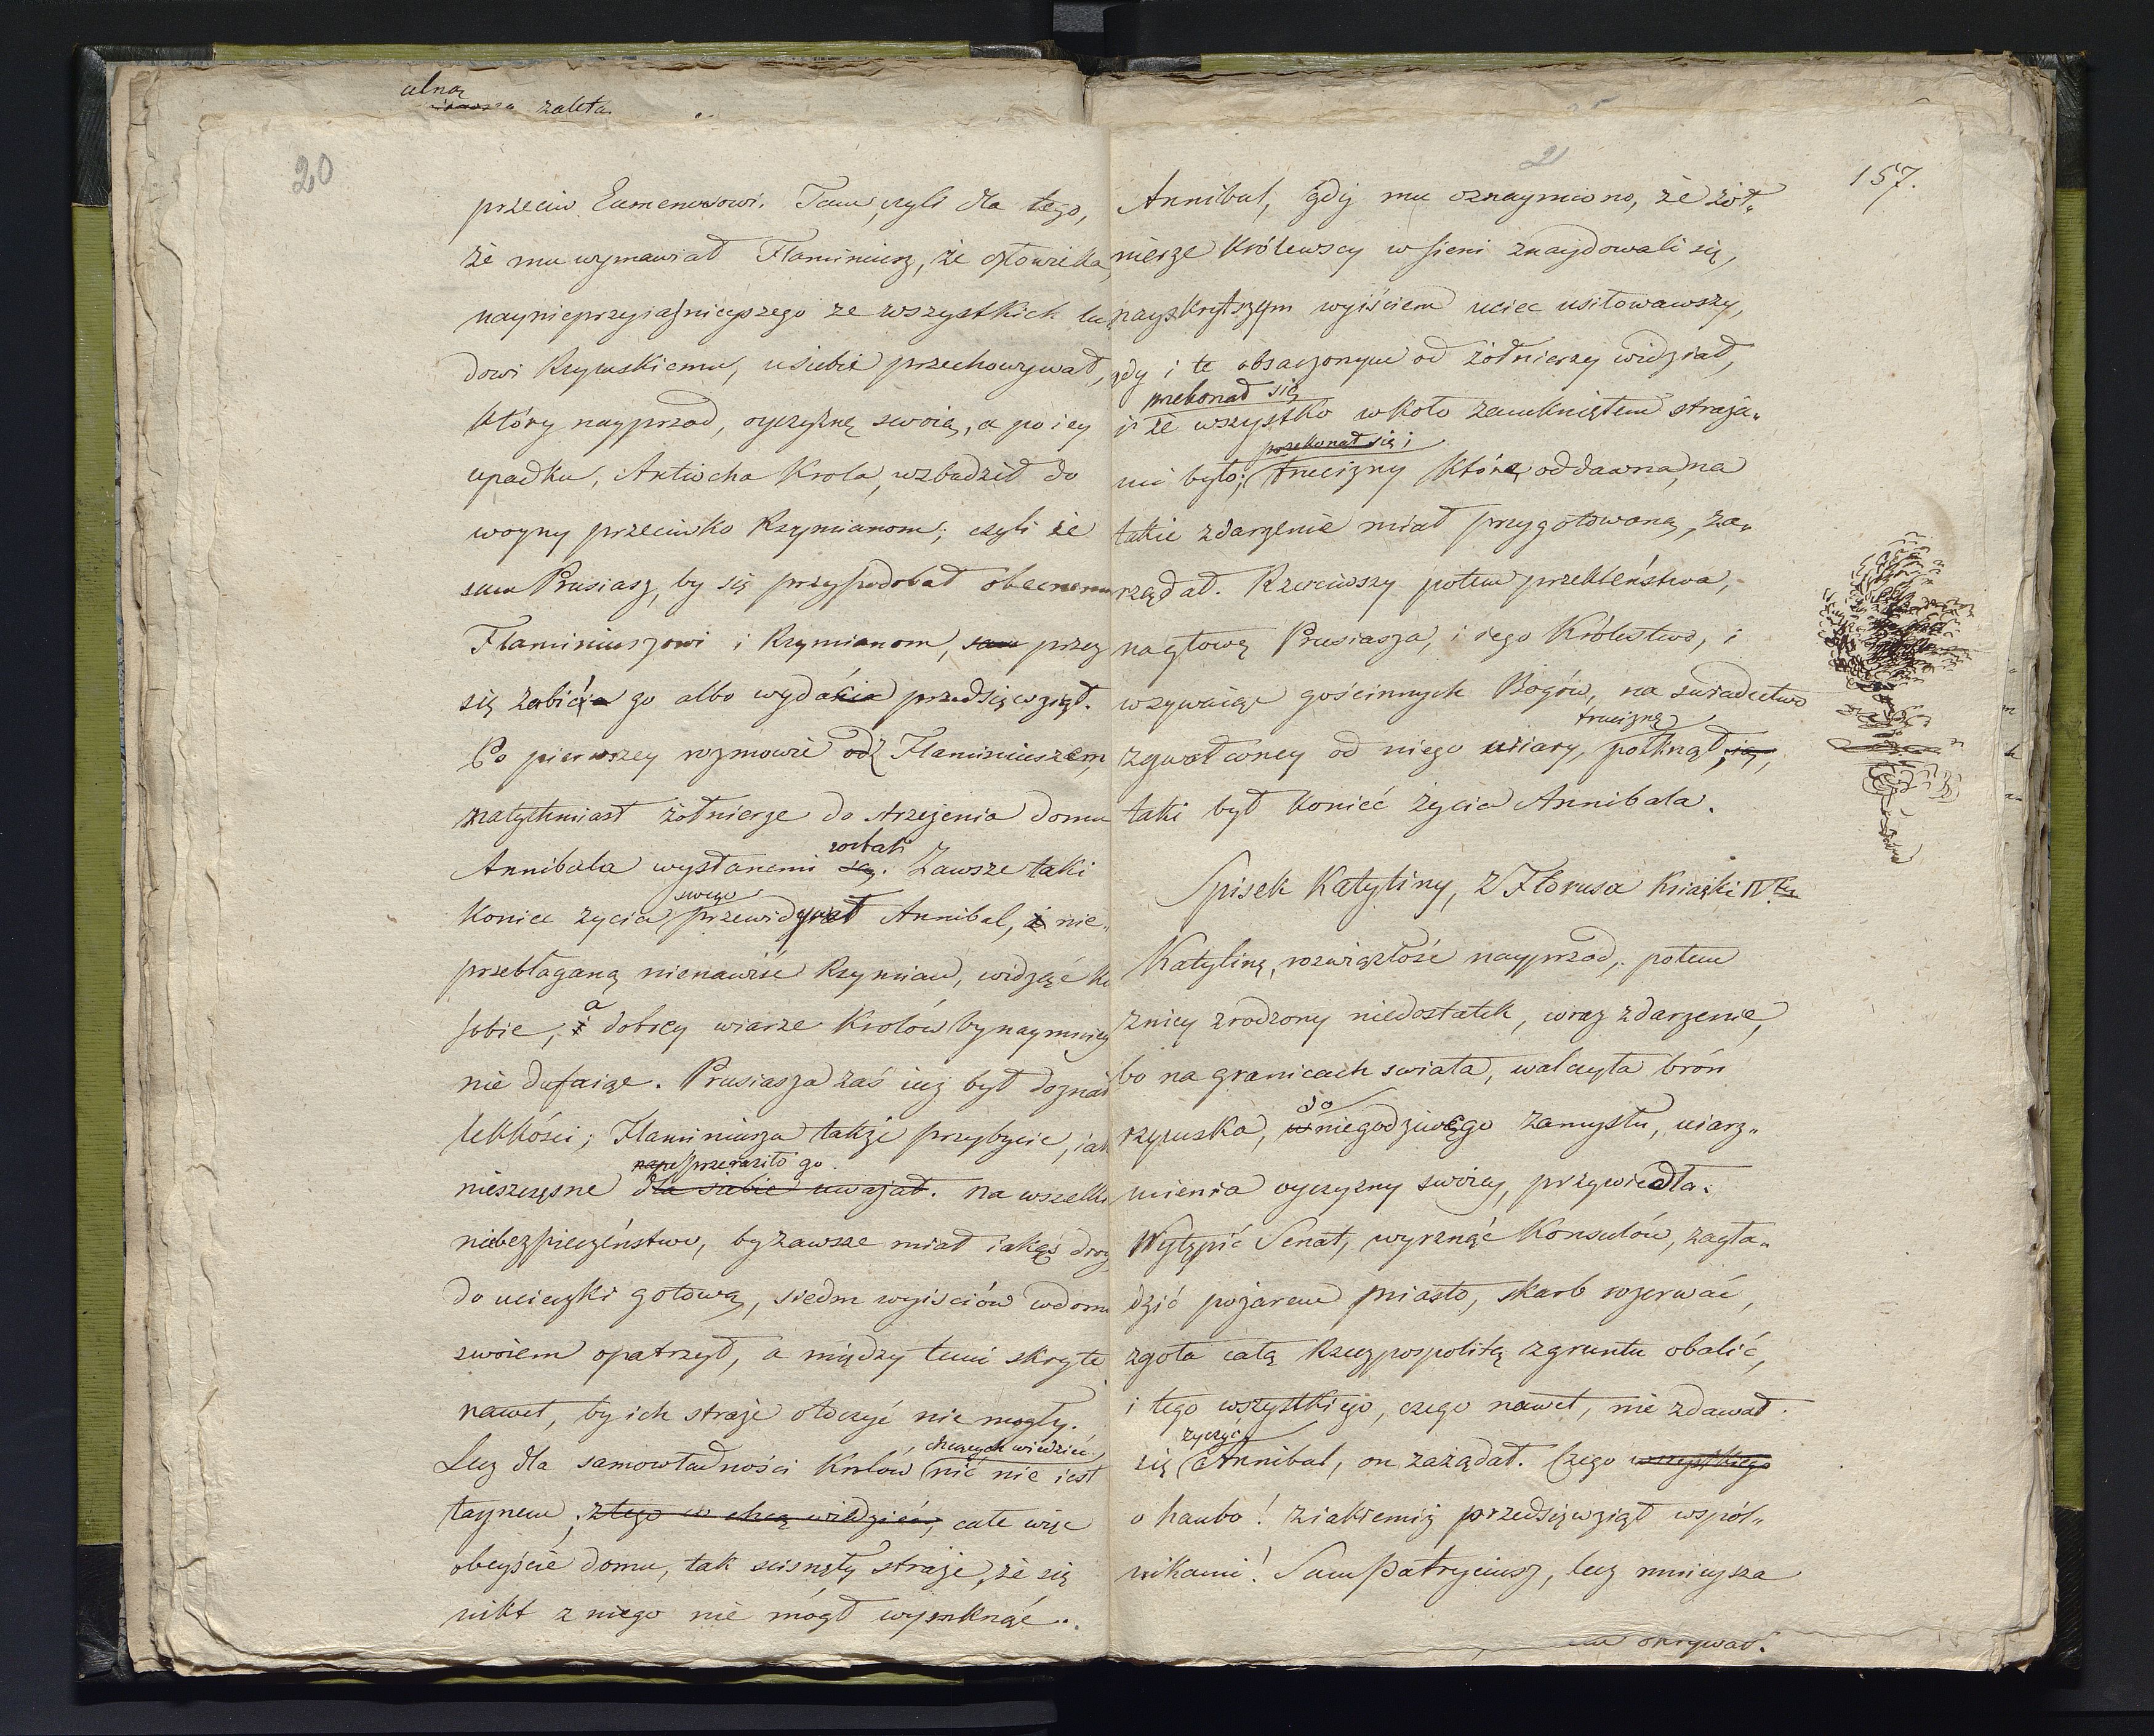 alną
zaleta
20
przeciw Eumenesowi. Tam, czyli dla tego,
że mu wymawiał Flaminiusz, że człowieka,
naynieprzyiaźnieyszego ze wszystkich lu
dowi Rzymskiemu, u siebie przechowywał,
który nayprzod, oyczyznę swoią, a po iey
upadku, Antiocha Krola, wzbudził do
woyny przeciwko Rzymianom; czyli że
sam Prusiasz, by się przypodobał obecnemu
Flaminiuszowi i Rzymianom, sam przez
się zabicia go albo wydania przedsięwziął.
Po pierwszey rozmowie od z Flaminiuszem,
natychmiast żołnierze do strzeżenia domu
zostali
Annibala wysłanemi są. Zawsze taki
swego
koniec życia przewidywał Annibal, i nie„
przebłaganą nienawiść Rzymian, widząc ku
a
sobie, i dobrey wiarze Krolów bynaymniey
nie dufaiąc. Prusiasza zaś iuż był doznał
lekkości; Flaminiusza także przybycie, iak
przeraziło go.
nieszczęsne dla siebie uważał. na wszelki
niebezpieczeństwo, by zawsze miał iakąś drog
do ucieczki gotową, siedm wyiściów w domu
swoiem opatrzył, a między temi skryte
nawet, by ich straże otoczyć nie mogły.
chcących wiedzieć,
Lecz dla samowładności Krolów nic nie iest
taynem, z tego co chcą wiedzieć, całe więc
obeyście domu, tak scisnęły straże, że się
nikt z niego nie mógł wymknąć.
21
157.
Annibal, gdy mu oznaymiono, że żoł„
nierze Królewscy w sieni znaydowali się,
nayskrytszym wyiściem uciec usiłowawszy,
gdy i te obsaczonym od żołnierzy widział,
przekonał się
i że wszystko w koło zamkniętem straża„
przekonał się i
mi było; trucizny którą oddawna, na
takie zdarzenie miał przygotowaną, za„
rządał. Rzuciwszy potem przekleństwa,
na głowę Prusiasza, i iego Królestwo, i
wzywaiąc gościnnych Bogów, na swiadectwo
truciznę
zgwałconey od niego wiary, połknął ią,
taki był koniec życia Annibala.
Spisek Katyliny, z Florusa Książki IV.tey
Katylinę, rozwiązłość nayprzod, potem
z niey zrodzony niedostatek, wraz zdarzenie,
bo na granicach swiata, walczyła broń
do
rzymska, w niegodziwego zamysłu, uiarz„
mienia oyczyzny swoiey, przywiedła.
Wytępić Senat, wyrznąć Konsulów, zagła„
dzić pożarem miasto, skarb rozerwać,
zgoła całą Rzeczpospolitą z gruntu obalić,
i tego wszystkiego, czego nawet, nie zdawał
życzyć
się Annibal, on zażądał. Czego wszystkiego
o hańbo! z iakiemiż przedsięwziął wspól„
nikami! Sam Patrycyusz, lecz mnieysza
okrywał.